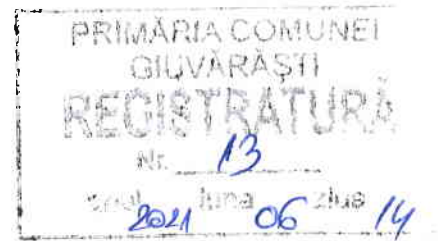 PRIMĂRIA COMUNEI
GIUVĂRĂȘTI
REGISTRATURĂ
Nr. 13
anul 2021 luna 06 ziua 14